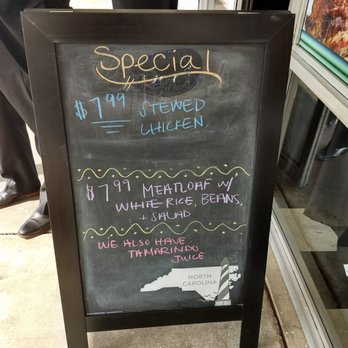 Special
$7.99 STEWED
CHICKEN
$7.99 MEATLOAF W/
WHITE RICE, BEANS,
+ SALAD
WE ALSO HAVE
TAMARINDO
JUICE
NORTH
CAROLINA